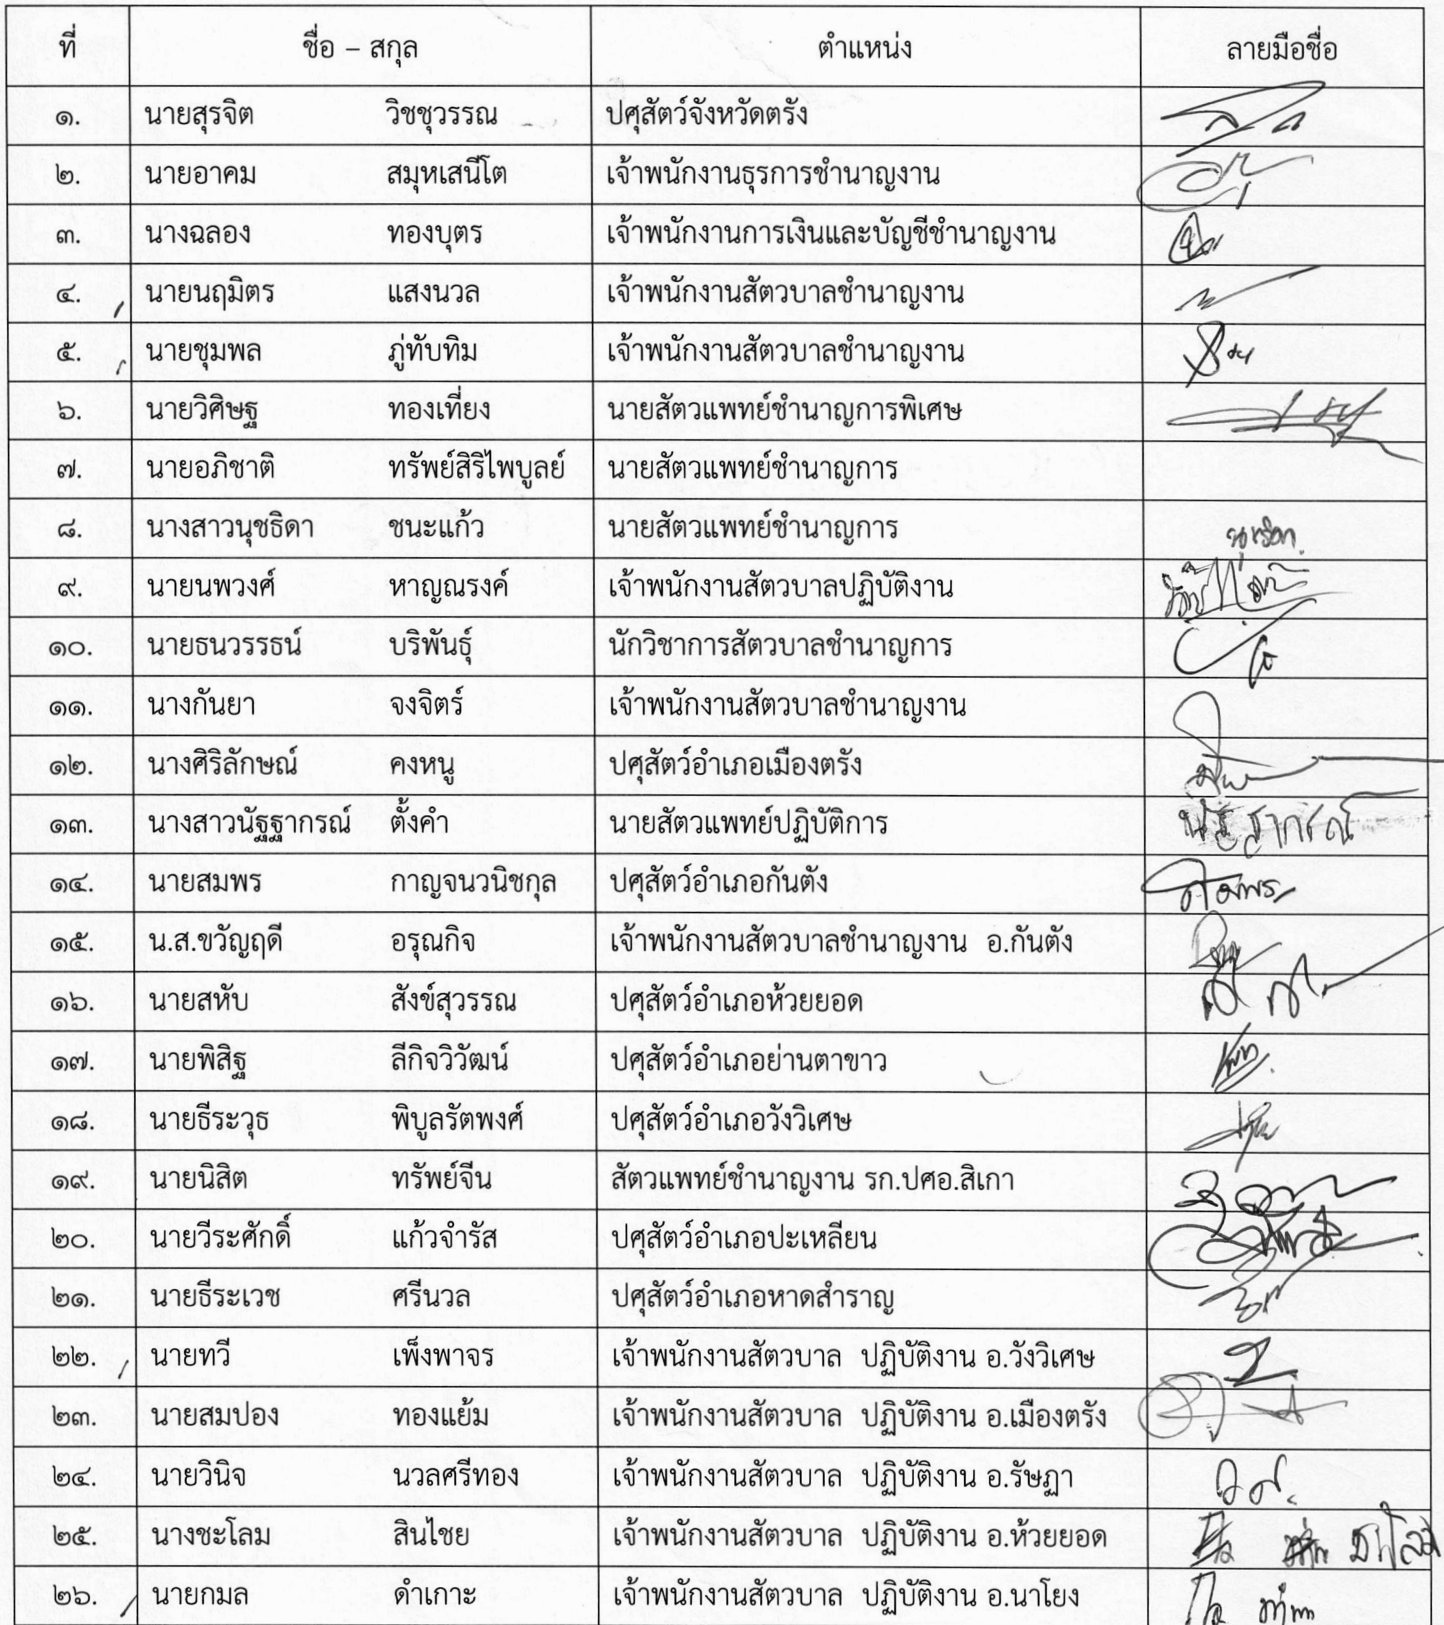 ที่ ชื่อ – สกุล ตำแหน่ง ลายมือชื่อ
๑. นายสุรจิต วิชชุวรรณ ปศุสัตว์จังหวัดตรัง
๒. นายอาคม สมุหเสนีโต เจ้าพนักงานธุรการชำนาญงาน
๓. นางฉลอง ทองบุตร เจ้าพนักงานการเงินและบัญชีชำนาญงาน
๔. นายนฤมิตร แสงนวล เจ้าพนักงานสัตวบาลชำนาญงาน
๕. นายชุมพล ภู่ทับทิม เจ้าพนักงานสัตวบาลชำนาญงาน
๖. นายวิศิษฐ ทองเที่ยง นายสัตวแพทย์ชำนาญการพิเศษ
๗. นายอภิชาติ ทรัพย์สิริไพบูลย์ นายสัตวแพทย์ชำนาญการ
๘. นางสาวนุชธิดา ชนะแก้ว นายสัตวแพทย์ชำนาญการ
๙. นายนพวงศ์ หาญณรงค์ เจ้าพนักงานสัตวบาลปฏิบัติงาน
๑๐. นายธนวรรธน์ บริพันธุ์ นักวิชาการสัตวบาลชำนาญการ
๑๑. นางกันยา จงจิตร์ เจ้าพนักงานสัตวบาลชำนาญงาน
๑๒. นางศิริลักษณ์ คงหนู ปศุสัตว์อำเภอเมืองตรัง
๑๓. นางสาวนัฐฐากรณ์ ตั้งคำ นายสัตวแพทย์ปฏิบัติการ นัฐฐากรณ์
๑๔. นายสมพร กาญจนวนิชกุล ปศุสัตว์อำเภอกันตัง สมพร
๑๕. น.ส.ขวัญฤดี อรุณกิจ เจ้าพนักงานสัตวบาลชำนาญงาน อ.กันตัง
๑๖. นายสหับ สังข์สุวรรณ ปศุสัตว์อำเภอห้วยยอด
๑๗. นายพิสิฐ ลีกิจวิวัฒน์ ปศุสัตว์อำเภอย่านตาขาว
๑๘. นายธีระวุธ พิบูลรัตพงศ์ ปศุสัตว์อำเภอวังวิเศษ
๑๙. นายนิสิต ทรัพย์จีน สัตวแพทย์ชำนาญงาน รก.ปศอ.สิเกา
๒๐. นายวีระศักดิ์ แก้วจำรัส ปศุสัตว์อำเภอปะเหลียน
๒๑. นายธีระเวช ศรีนวล ปศุสัตว์อำเภอหาดสำราญ
๒๒. นายทวี เพ็งพาจร เจ้าพนักงานสัตวบาล ปฏิบัติงาน อ.วังวิเศษ
๒๓. นายสมปอง ทองแย้ม เจ้าพนักงานสัตวบาล ปฏิบัติงาน อ.เมืองตรัง
๒๔. นายวินิจ นวลศรีทอง เจ้าพนักงานสัตวบาล ปฏิบัติงาน อ.รัษฎา
๒๕. นางชะโลม สินไชย เจ้าพนักงานสัตวบาล ปฏิบัติงาน อ.ห้วยยอด
๒๖. นายกมล ดำเกาะ เจ้าพนักงานสัตวบาล ปฏิบัติงาน อ.นาโยง